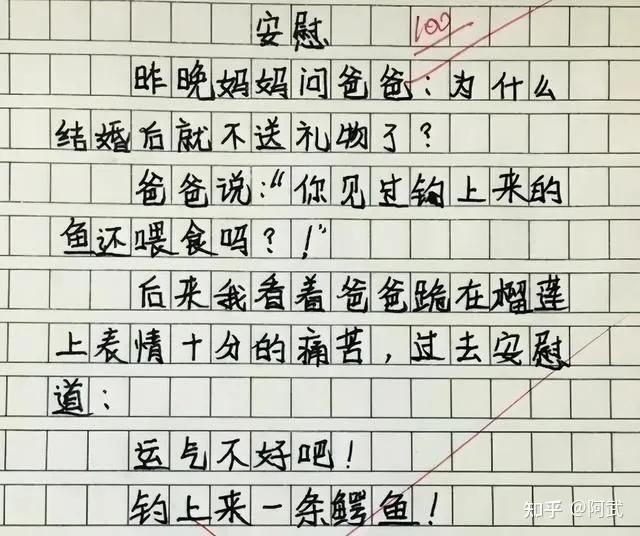 安慰
100
昨晚妈妈问爸爸:为什么
结婚后就不送礼物了?
爸爸说:“你见过钩上来的
鱼还喂食吗?!”
后来我看着爸爸跪在榴莲
上表情十分的痛苦,过去安慰
道:
运气不好吧!
钓上来一条鳄鱼!
知乎 @阿武